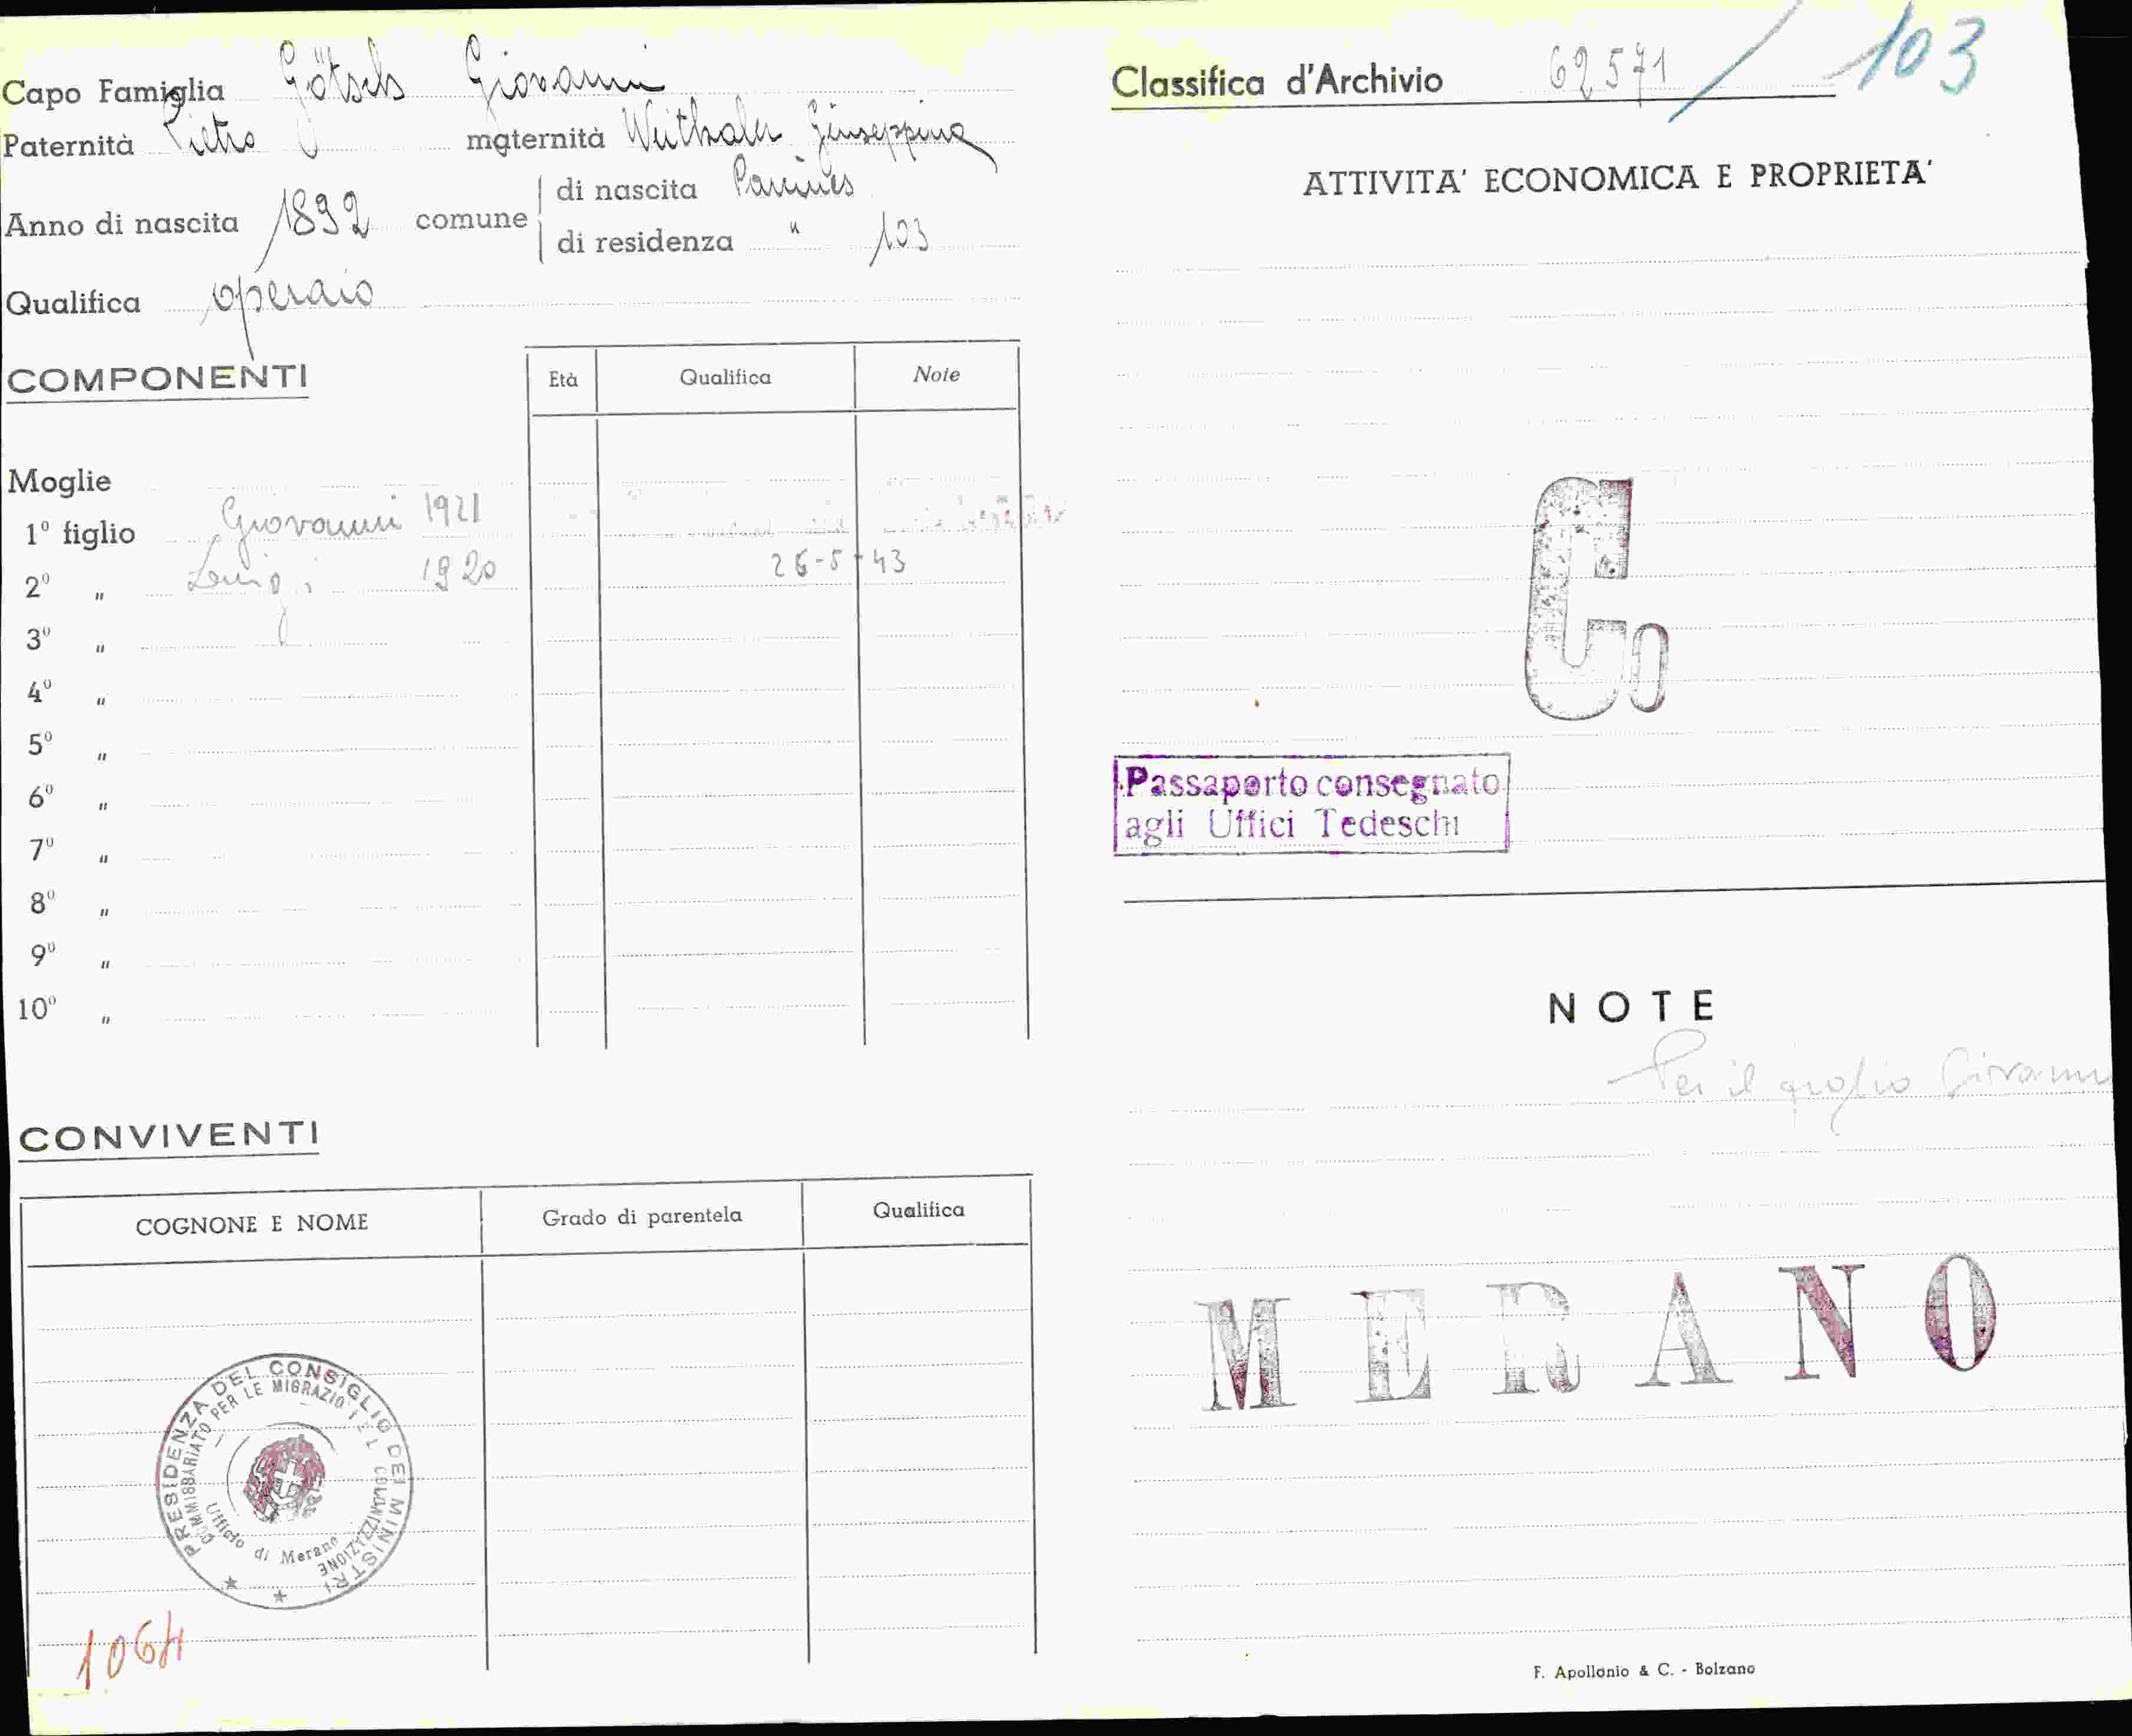 Capo Famiglia Götsch Giovanni
Paternità Pietro maternità Weithaler Giuseppina
Anno di nascita 1892 comune di nascita Parcines
di residenza " 103
Qualifica operaio
COMPONENTI
Età Qualifica Note
Moglie
1º figlio Giovanni 1921
2º " Luigi 1920 26-5-43
3º "
4º "
5º "
6º "
7º "
8º "
9º "
10º "
CONVIVENTI
COGNONE E NOME Grado di parentela Qualifica
PRESIDENZA DEL CONSIGLIO DEI MINISTRI
COMMISSARIATO PER LE MIGRAZIONI E L COLONIZZAZIONE
Ufficio di Merano
1064
Classifica d'Archivio 62571 / 103
ATTIVITA' ECONOMICA E PROPRIETA'
Co
Passaporto consegnato
agli Uffici Tedeschi
NOTE
Per il figlio Giovanni
MERANO
F. Apollonio & C. - Bolzano